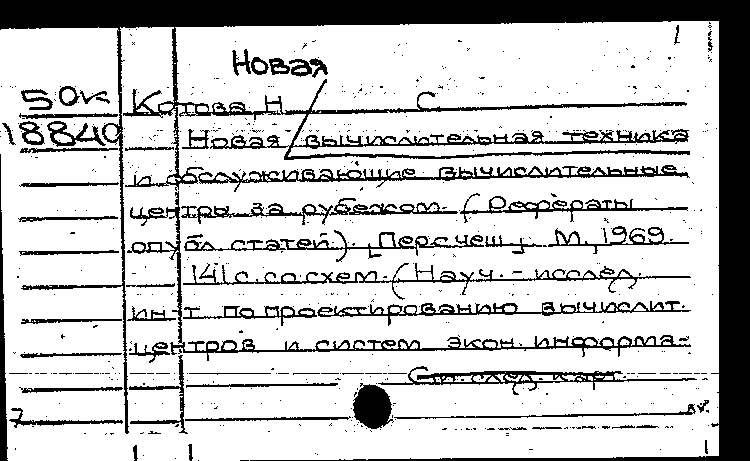 1
Новая
50к Котова, Н. С.
18840 Новая вычислительная техника
и обслуживающие вычислительные
центры за рубежом. (Рефераты
опубл. статей). [Пер. с чеш.]. М., 1969.
141 с. со схем. (Науч.-исслед.
ин-т по проектированию вычислит.
центров и систем экон. информа-
См. след. карт.
7